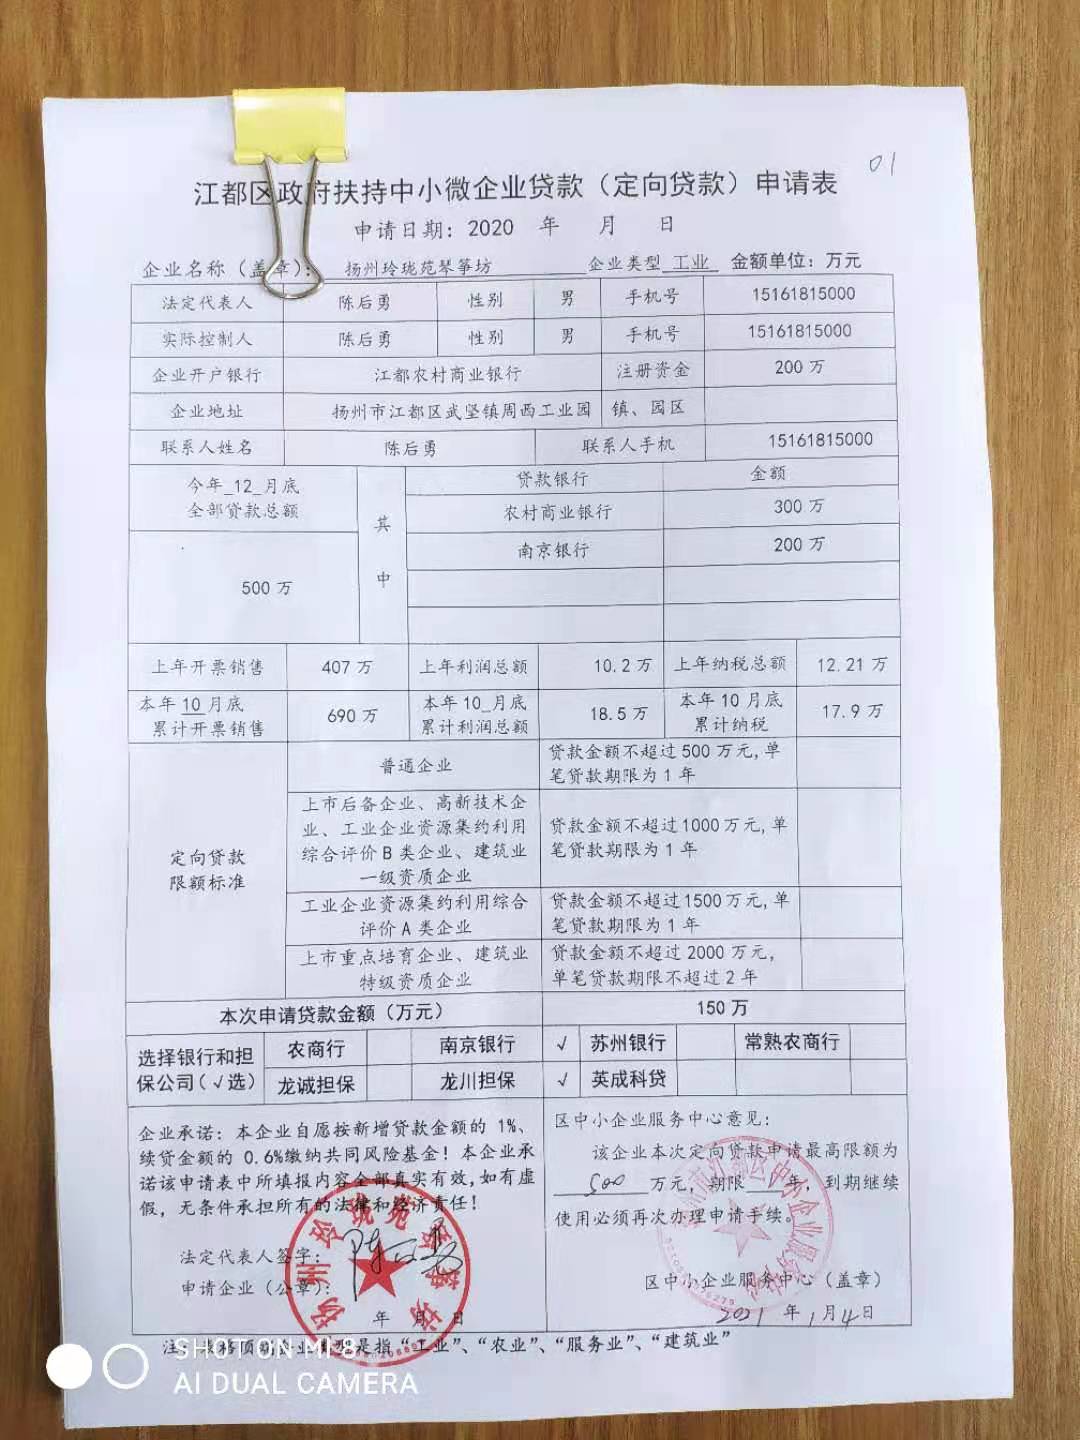 01
江都区政府扶持中小微企业贷款（定向贷款）申请表
申请日期：2020 年 月 日
企业名称（盖章）： 扬州玲珑苑琴筝坊 企业类型 工业 金额单位：万元
法定代表人 陈后勇 性别 男 手机号 15161815000
实际控制人 陈后勇 性别 男 手机号 15161815000
企业开户银行 江都农村商业银行 注册资金 200 万
企业地址 扬州市江都区武坚镇周西工业园 镇、园区
联系人姓名 陈后勇 联系人手机 15161815000
今年_12_月底
全部贷款总额
500 万
其
中
贷款银行 金额
农村商业银行 300 万
南京银行 200 万
上年开票销售 407 万 上年利润总额 10.2 万 上年纳税总额 12.21 万
本年 10 月底
累计开票销售
690 万
本年 10_月底
累计利润总额
18.5 万
本年 10 月底
累计纳税
17.9 万
定向贷款
限额标准
普通企业
贷款金额不超过 500 万元,单
笔贷款期限为 1 年
上市后备企业、高新技术企
业、工业企业资源集约利用
综合评价 B 类企业、建筑业
一级资质企业
贷款金额不超过1000万元,单
笔贷款期限为 1 年
工业企业资源集约利用综合
评价 A 类企业
贷款金额不超过1500万元,单
笔贷款期限为 1 年
上市重点培育企业、建筑业
特级资质企业
贷款金额不超过 2000 万元,
单笔贷款期限不超过 2 年
本次申请贷款金额（万元） 150 万
选择银行和担
保公司（√选）
农商行 南京银行 √ 苏州银行 常熟农商行
龙诚担保 龙川担保 √ 英成科贷
企业承诺：本企业自愿按新增贷款金额的 1%、
续贷金额的 0.6%缴纳共同风险基金！本企业承
诺该申请表中所填报内容全部真实有效,如有虚
假，无条件承担所有的法律和经济责任！
法定代表人签字：
申请企业（公章）：
年 月 日
扬州玲珑苑琴筝坊
区中小企业服务中心意见：
该企业本次定向贷款申请最高限额为
500 万元，期限 年，到期继续
使用必须再次办理申请手续。
区中小企业服务中心（盖章）
2021 年 1月 14日
注：表格顶端企业类型是指“工业”、“农业”、“服务业”、“建筑业”
SHOT ON MI 8
AI DUAL CAMERA